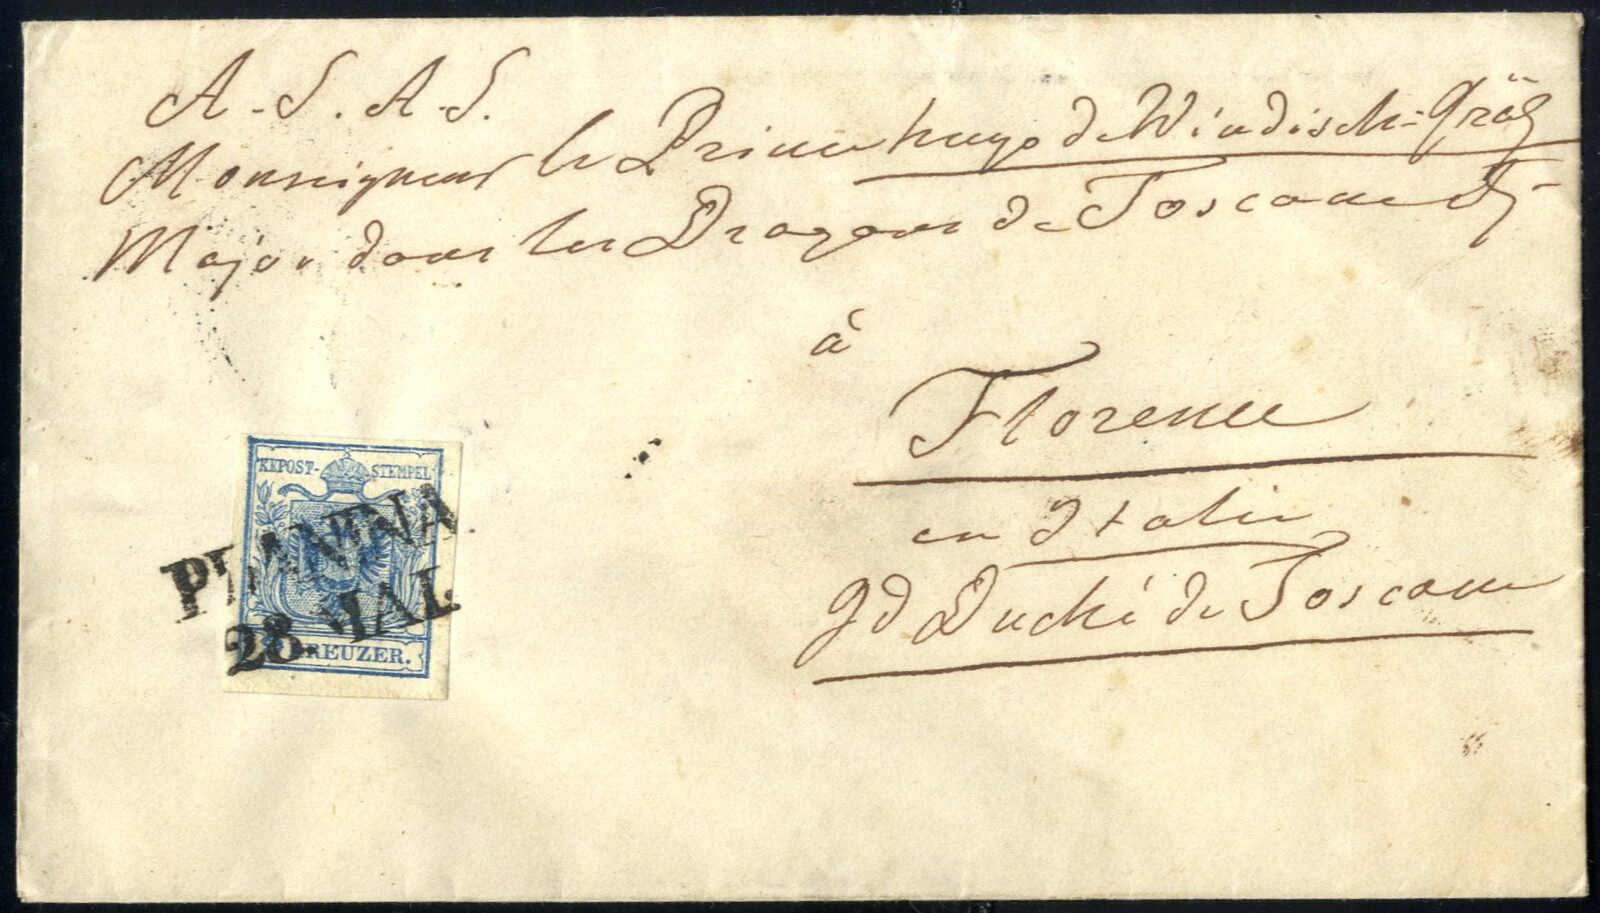 A. S. A. S.
Monseigneur le Prince Hugo de Windisch-Gräz
Major dans les Dragons de Toscane
à
Florence
en Italie
Gd Duché de Toscane
KKPOST-STEMPEL
PLANINA
28. MAI.
KREUZER.